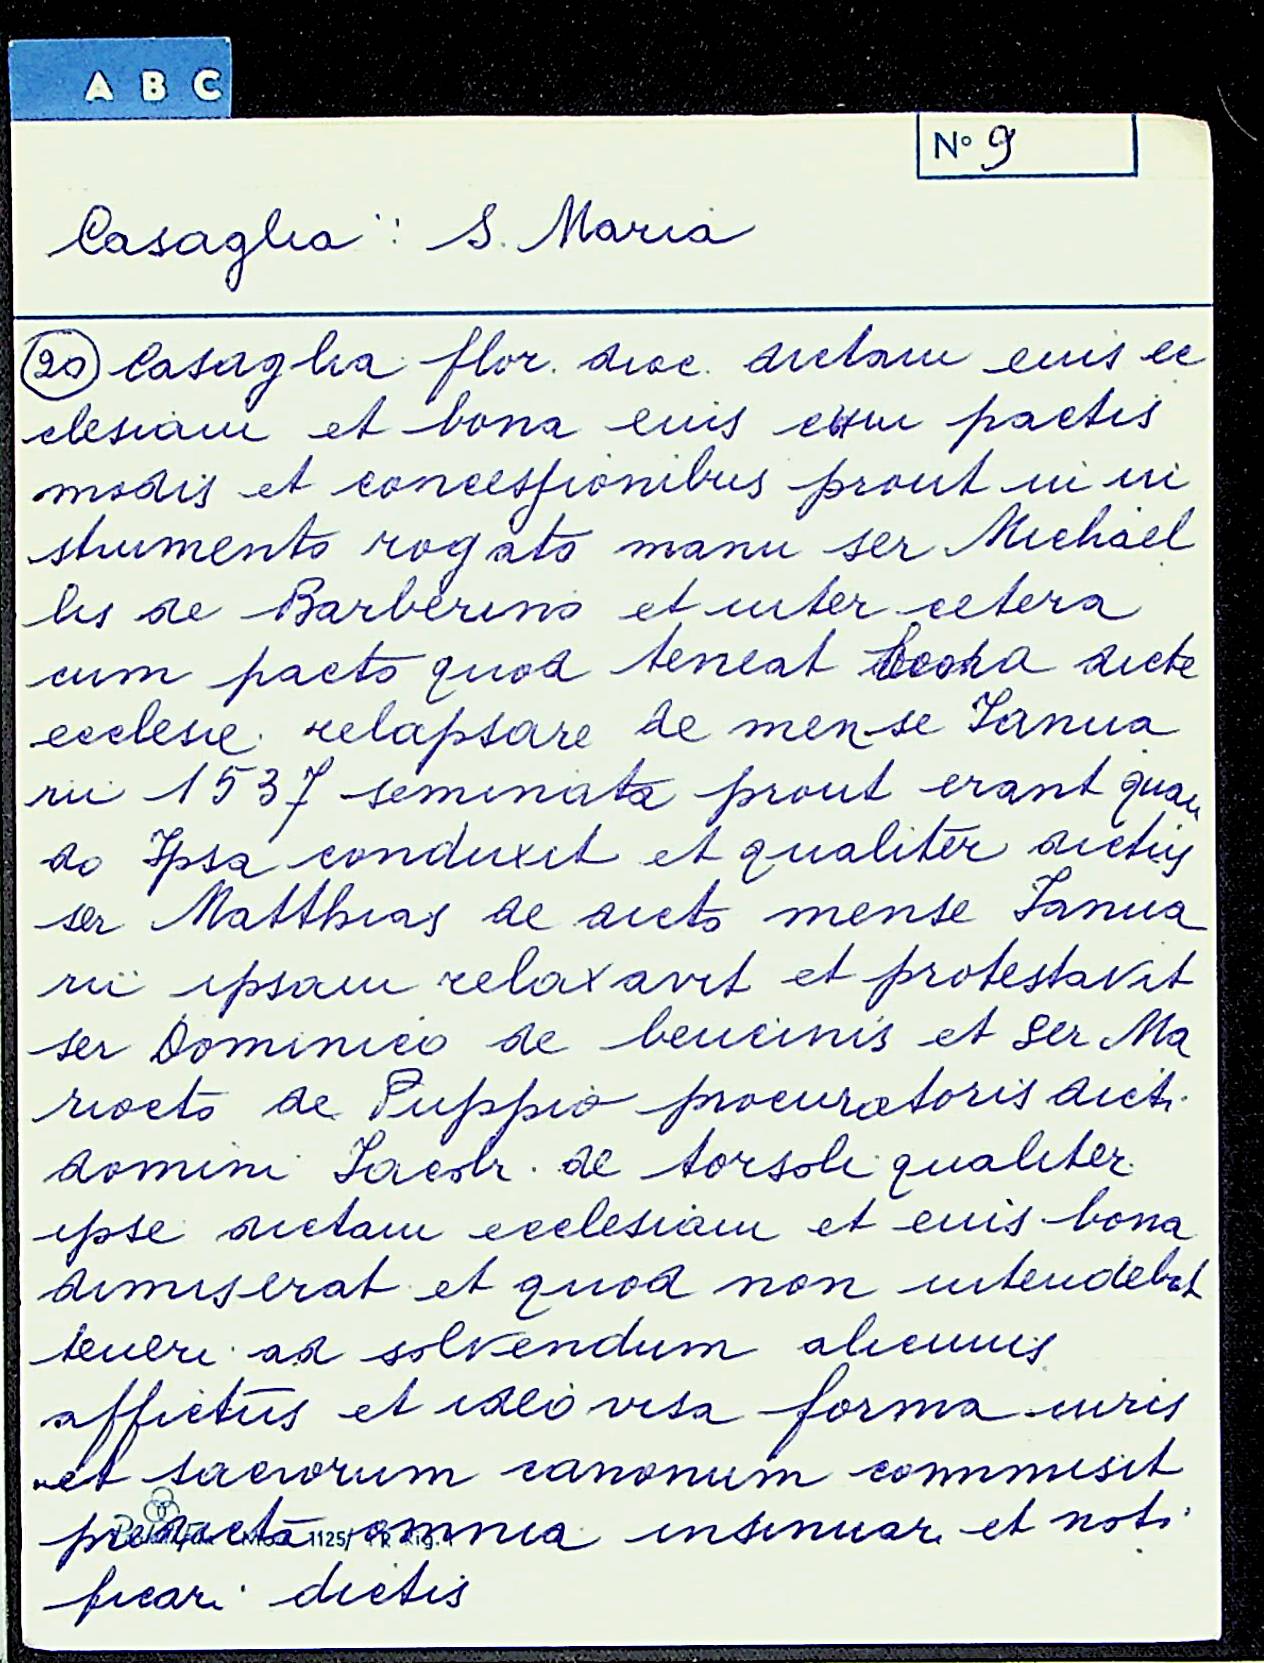 A B C
N° 9
Casaglia : S. Maria
20 Casaglia flor. dioc. dictam eius ec
clesiam et bona eius cum pactis
modis et concessionibus prout in in
strumento rogato manu ser Michael
lis de Barberino et inter cetera
cum pacto quod teneat bona dicte
ecclesie relapsare de mense Ianua
rii 1537 seminata prout erant quan
do Ipsa conduxit et qualiter dictus
ser Matthias de dicto mense Ianua
rii ipsam relaxavit et protestavit
ser Dominico de beucinis et ser Ma
riocto de Puppio procuratoris dicti
domini Iacobi de torsoli qualiter
ipse dictam ecclesiam et euis bona
dimiserat et quod non intendebat
teneri ad solvendum alicuius
affictus et ideo visa forma iuris
et sacrorum canonum commisit
predicta omnia insinuari et noti
ficari dictis
Mod. 1125/